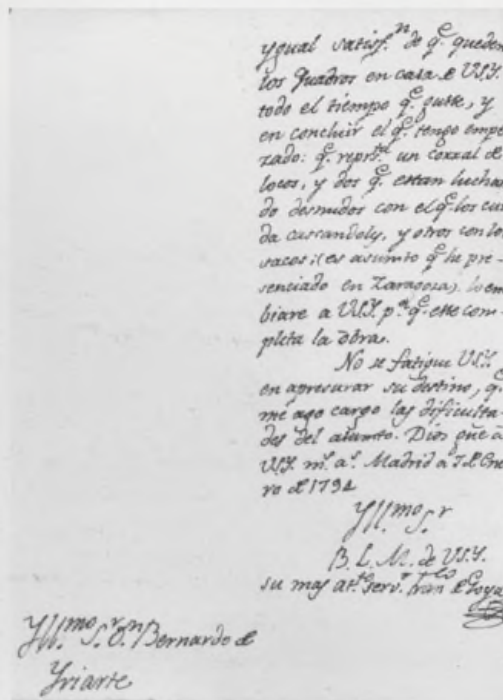 ygual satisf.n de q.e queden
los Quadros en casa de VSY.
todo el tiempo q.e guste, y
en concluir el q.e tengo empe
zado: q.e repres.ta un corral de
locos, y dos q.e estan luchan
do desnudos con el q.e los cui
da cascandoles, y otros con los
sacos; (es asumto q.e he pre-
senciado en Zaragoza). lo em
biare a VSY. p.a q.e este com-
pleta la obra.
No se fatigue VSY.
en apresurar su destino, q.e
me ago cargo las dificulta
des del asumto. Dios gūe a
VSY. m.s a.s Madrid a 7 de Ene
ro de 1794
Yll.mo S.r
B. L. M. de VSY.
su mas at.to serv.r Fran.co de Goya
Yll.mo S.r D.n Bernardo de
Yriarte